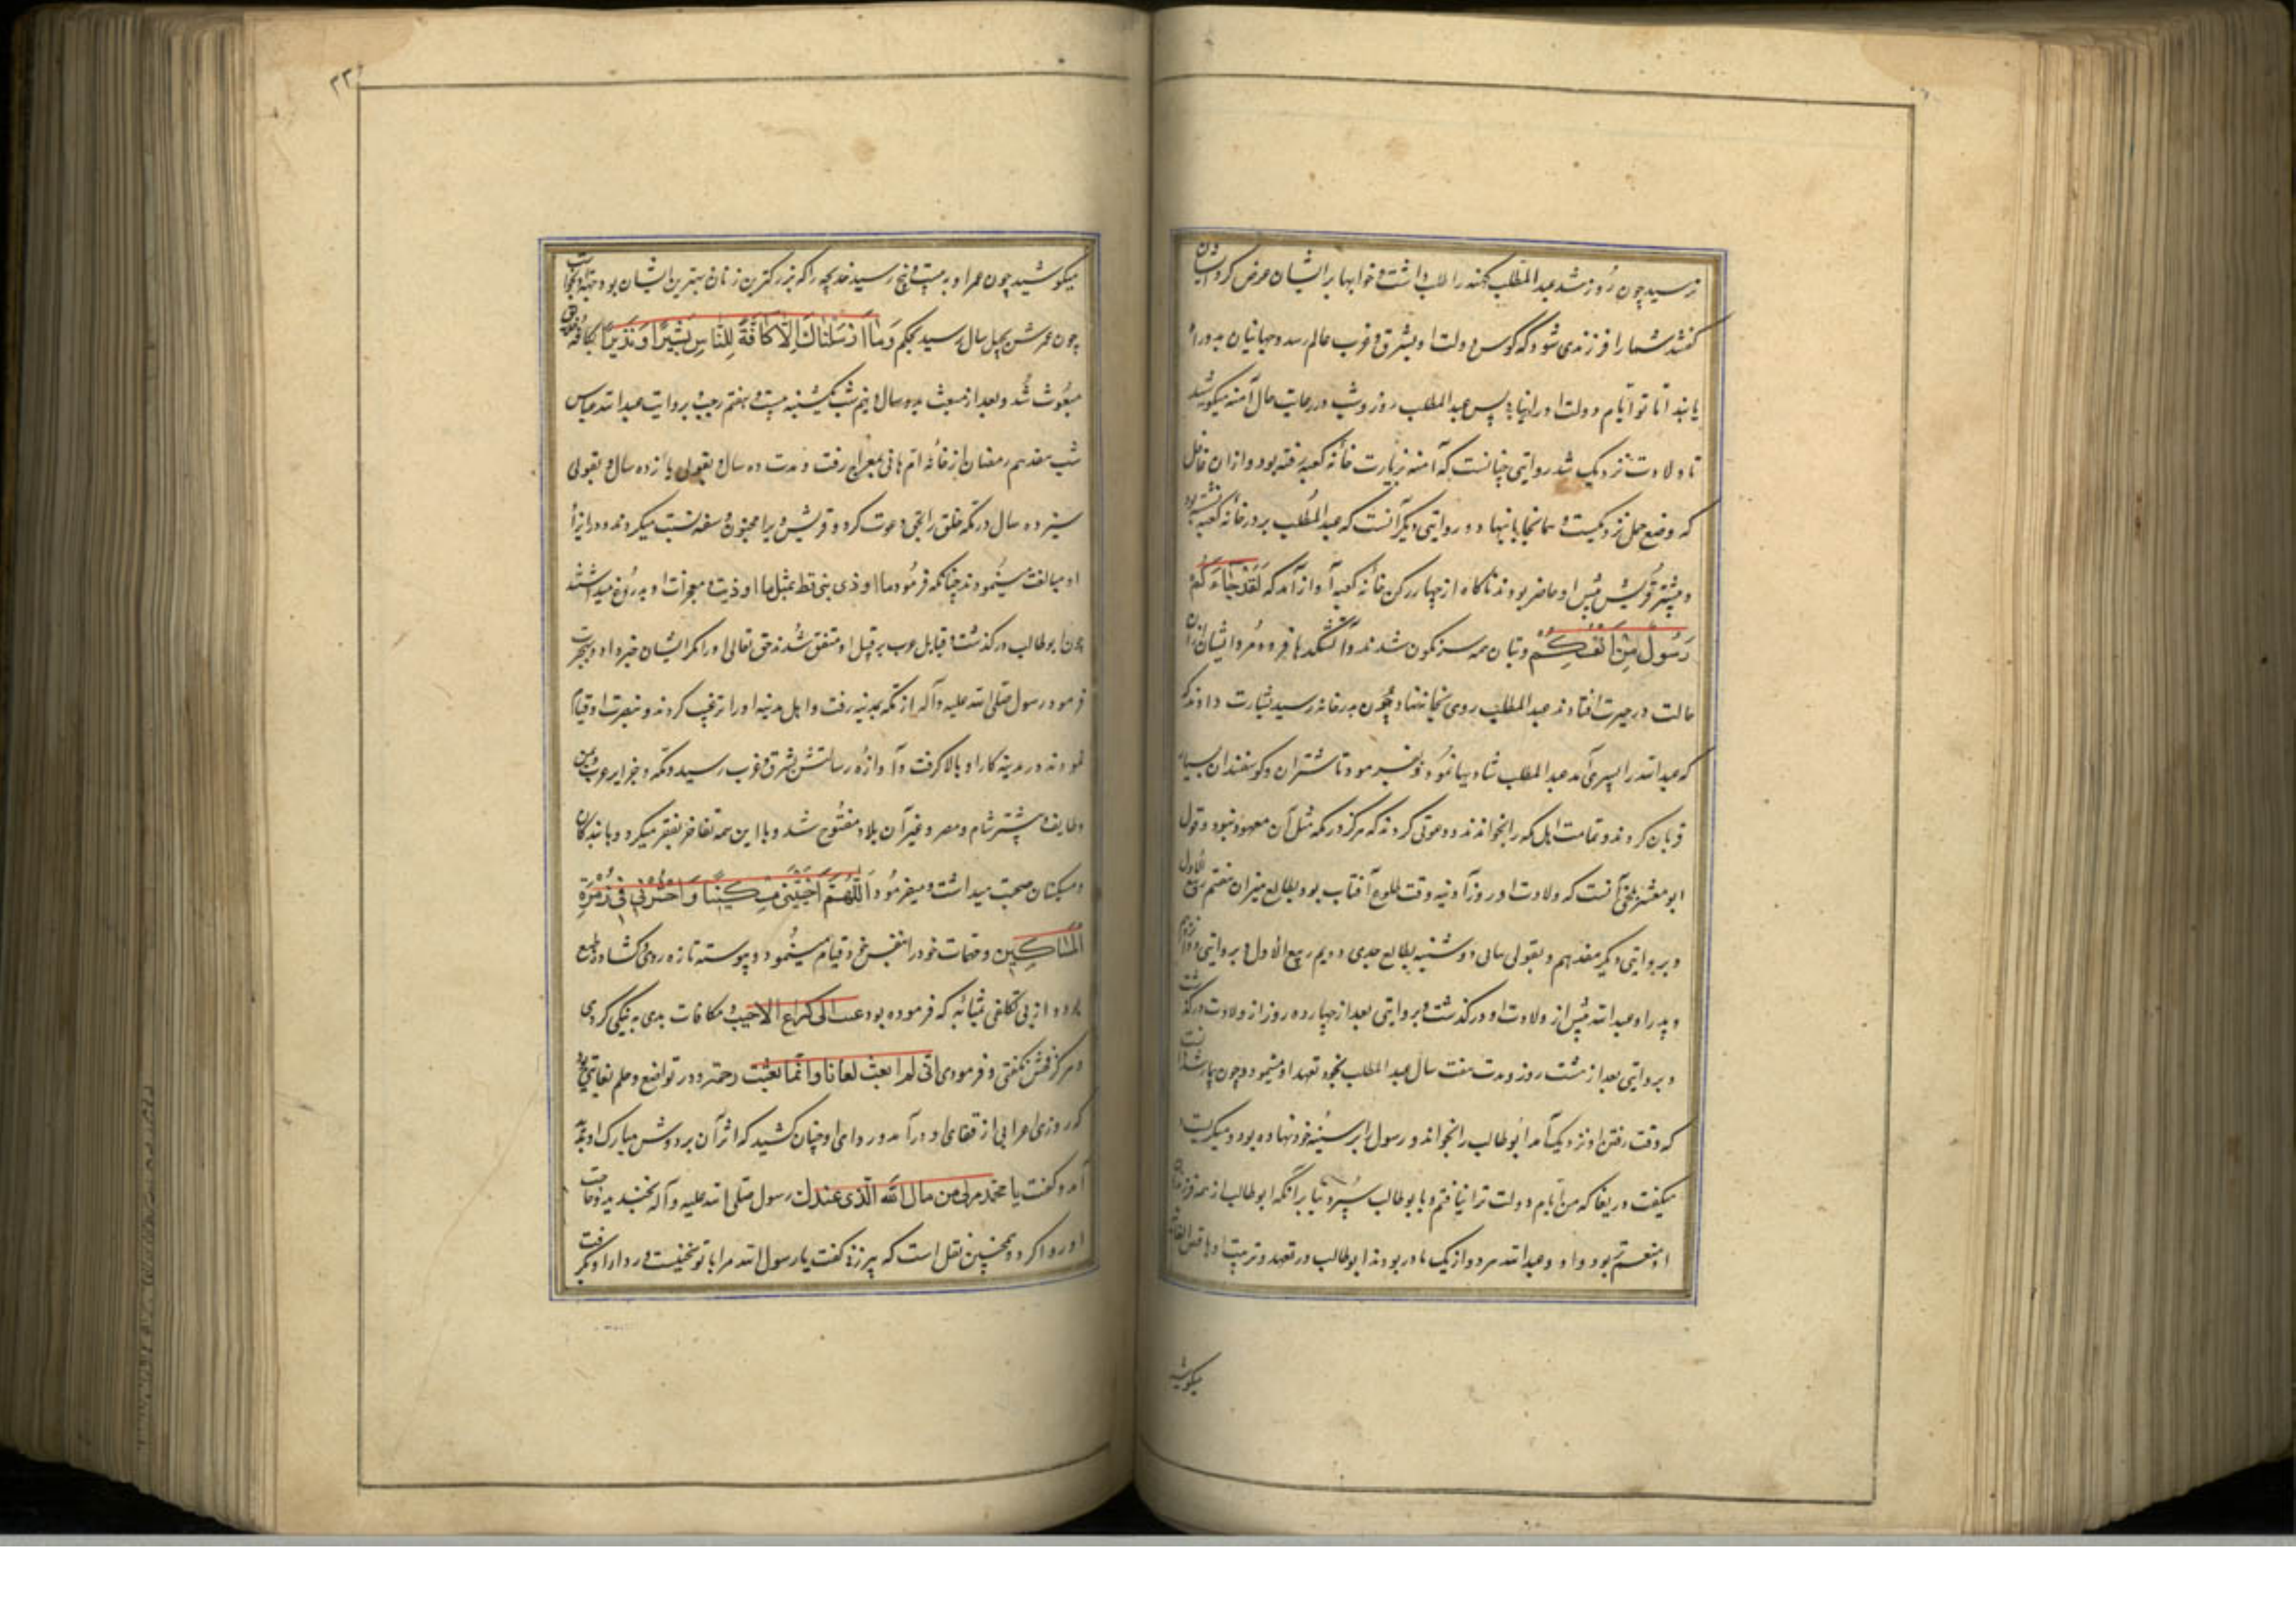 نرسید چون روز شد عبدالمطلب کهنه را طلب داشت و خوابها بر ایشان عرض کرد ایشان
گفتند شما را فرزندی شود که کوس دولت او بشرق و غرب عالم رسد و جهانیان بدو راه
یابند اما تو ایام دولت او را نیابی پس عبدالمطلب روز و شب در رعایت حال آمنه میکوشید
تا ولادت نزدیک شد روایتی چنانست که آمنه بزیارت خانه کعبه رفته بود و از آن غافل
که وضع حمل نزدیکست همانجا بار بنهاد و روایتی دیگر آنست که عبدالمطلب بر در خانه کعبه نشسته بود
و بیشتر قریش پیش او حاضر بودند ناگاه از چهار رکن خانه کعبه آواز آمد که لَقَدْ جَاءَكُمْ
رَسُولٌ مِنْ أَنْفُسِكُمْ و بتان همه سرنگون شدند و آتشکدها فرو مرد ایشان از آن
حالت در حیرت افتادند عبدالمطلب روی بخانه نهاد چون بدر خانه رسید بشارت دادند که
که عبدالله را پسری آمد عبدالمطلب شادیها نمود و بفرمود تا شتران و گوسفندان بسیار
قربان کردند و تمامت اهل مکه را بخواندند و دعوتی کردند که هرگز در مکه مثل آن معهود نبود و قول
ابو معشر بلخی آنست که ولادت او روز آدینه وقت طلوع آفتاب بود بطالع میزان هفتم ربیع الاول
و بروایتی دیگر هفدهم و بقولی سالی دوشنبه بطالع جدی دویم ربیع الاول و بروایتی دوازدهم
و پدر او عبدالله پیش از ولادت او درگذشت و بروایتی بعد از چهارده روز از ولادت درگذشت
و بروایتی بعد از هشت روز و مدت هفت سال عبدالمطلب بخود تعهد او مینمود و چون
که وقت رفتن او نزدیک آمد ابوطالب را بخواند و رسول را بر سینه خود نهاده بود و میگریست و
میگفت دریغا که من ایام دولت ترا نیافتم و بابوطالب سپرد بنا بر آنکه ابوطالب از همه فرزندان
او منعم‌تر بود و او و عبدالله هر دو از یک مادر بودند ابوطالب در تعهد و تربیت او
میکوشید
۲۳
میکوشید چون عمر او به بیست و پنج رسید خدیجه را که بزرگترین زنان و بهترین ایشان بود
چون عمرش بچهل سال رسید بحکم وَمَا أَرْسَلْنَاكَ إِلَّا كَافَّةً لِلنَّاسِ بَشِيرًا وَنَذِيرًا بکافه خلایق
مبعوث شد و بعد از مبعث بدو سال و نیم شب یکشنبه بیست و هفتم رجب و بروایت عبدالله عباس
شب هفدهم رمضان از خانه ام هانی بمعراج رفت و مدت ده سال و بقولی یازده سال و بقولی
سیزده سال در مکه خلق را بحق دعوت کرد و قریش ویرا بجنون و سفه نسبت میکردند و در ایذاء
او مبالغت مینمودند چنانکه فرمود ما اوذی نبی قط بمثل ما اوذیت و معجزات او بدروغ میداشتند
چون ابوطالب درگذشت و قبایل عرب بر قتل او متفق شدند حق تعالی او را از مکر ایشان خبر داد و بهجرت
فرمود رسول صلی الله علیه و آله از مکه بمدینه رفت و اهل مدینه او را ترغیب کردند و بنصرت او قیام
نمودند و در مدینه کار او بالا گرفت و آوازه رسالتش بشرق و غرب رسید و مکه و جزایر عرب و یمن
و طایف و بیشتر شام و مصر و غیر آن بلاد مفتوح شد و با این همه تفاخر بفقر میکرد و با بندگان
و مسکینان صحبت میداشت و میفرمود اَللّٰهُمَّ اَحْيِنِي مِسْكِينًا وَاحْشُرْنِي فِي زُمْرَةِ
الْمَسَاكِين و مهمات خود را بنفس خود قیام مینمود و پیوسته تازه روی و گشاده طبع
بود و از بی تکلفی بمثابه که فرموده بود الی کراع الاجیب و مکافات بدی به نیکی کردی
و هرگز فحش نگفتی و فرمودی انی لم ابعث لعانا و انما بعثت رحمة و در تواضع و حلم بغایتی بود
که روزی اعرابی از قفای او درآمد و ردای او چنان کشید که اثر آن بر دوش مبارک او پدید
آمد و گفت یا محمد مر لی من مال الله الذی عندک رسول صلی الله علیه و آله بخندید و حاجت
او روا کرد و همچنین نقل است که پیرزنی گفت یا رسول الله مرا با تو